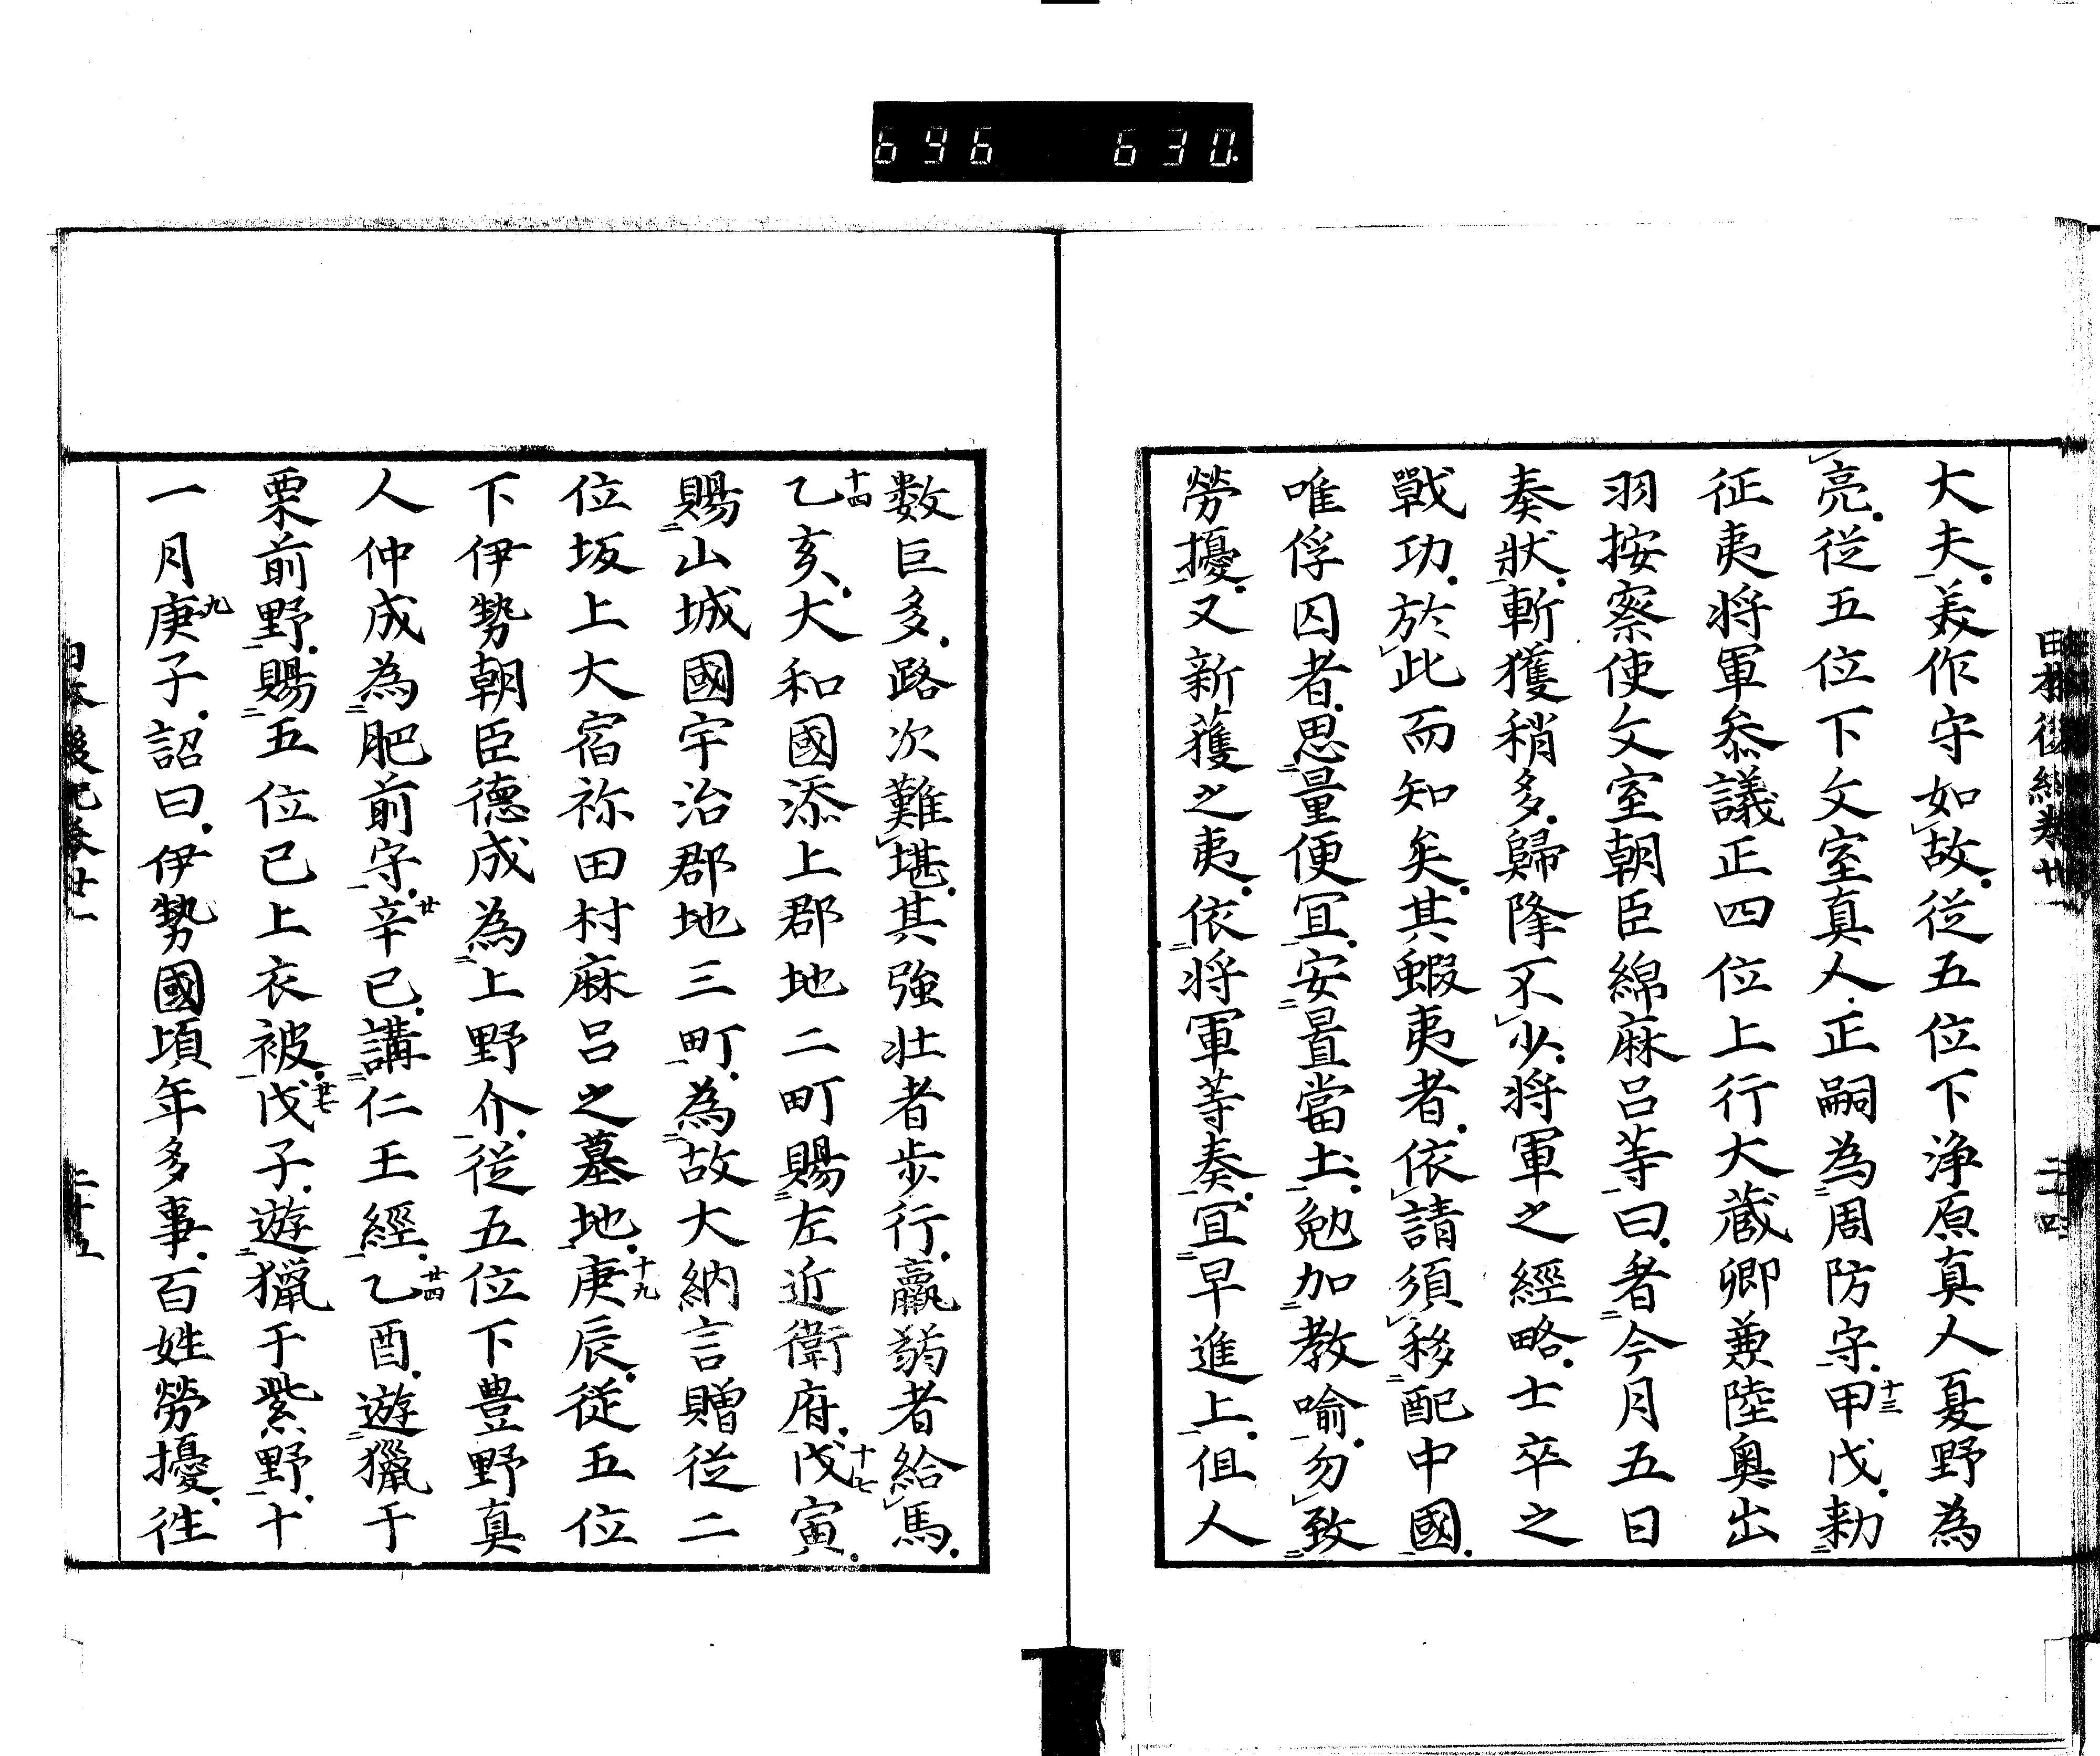 696 630.
大夫。美作守如故。從五位下浄原真人夏野為
亮。從五位下文室真人正嗣為周防守。甲戌十三。勅
征夷將軍叅議正四位上行大蔵卿兼陸奥出
羽按察使文室朝臣綿麻呂等曰。省今月五日
奏狀。斬獲稍多。歸降不少。將軍之經略。士卒之
戰功。於此而知矣。其蝦夷者。依請須移配中國。
唯俘囚者。思量便冝。安置當土。勉加教喻。勿致
勞擾。又新獲之夷。依將軍等奏。冝早進上。但人
数巨多。路次難堪。其強壯者歩行。羸弱者給馬。
乙亥十四。大和國添上郡地二町賜左近衛府。戊寅十七。
賜山城國宇治郡地三町。為故大納言贈從二
位坂上大宿祢田村麻呂之墓地。庚辰十九。從五位
下伊勢朝臣德成為上野介。從五位下豊野真
人仲成為肥前守。辛巳廿。講仁王經。乙酉廿四。遊獵于
栗前野。賜五位已上衣被。戊子廿七。遊獵于紫野。十
一月庚子九。詔曰。伊勢國頃年多事。百姓勞擾。徃
日本後紀巻廿一 二十五